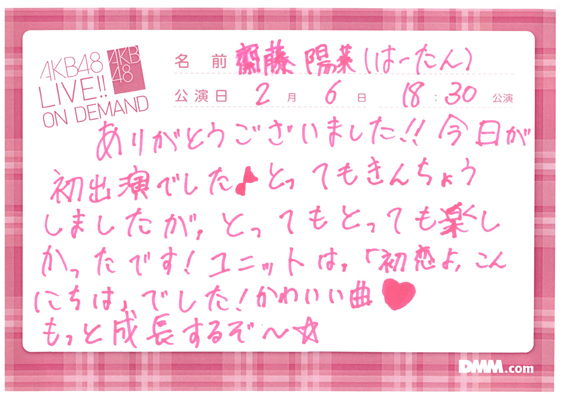 AKB48
LIVE!!
ON DEMAND
AKB
48
名前 齋藤 陽菜(はーたん)
公演日 2月 6日 18:30 公演
ありがとうございました!! 今日が
初出演でした♪とってもきんちょう
しましたが、とってもとっても楽し
かったです!ユニットは、「初恋よ、こん
にちは」でした!かわいい曲♥
もっと成長するぞ〜☆
DMM.com